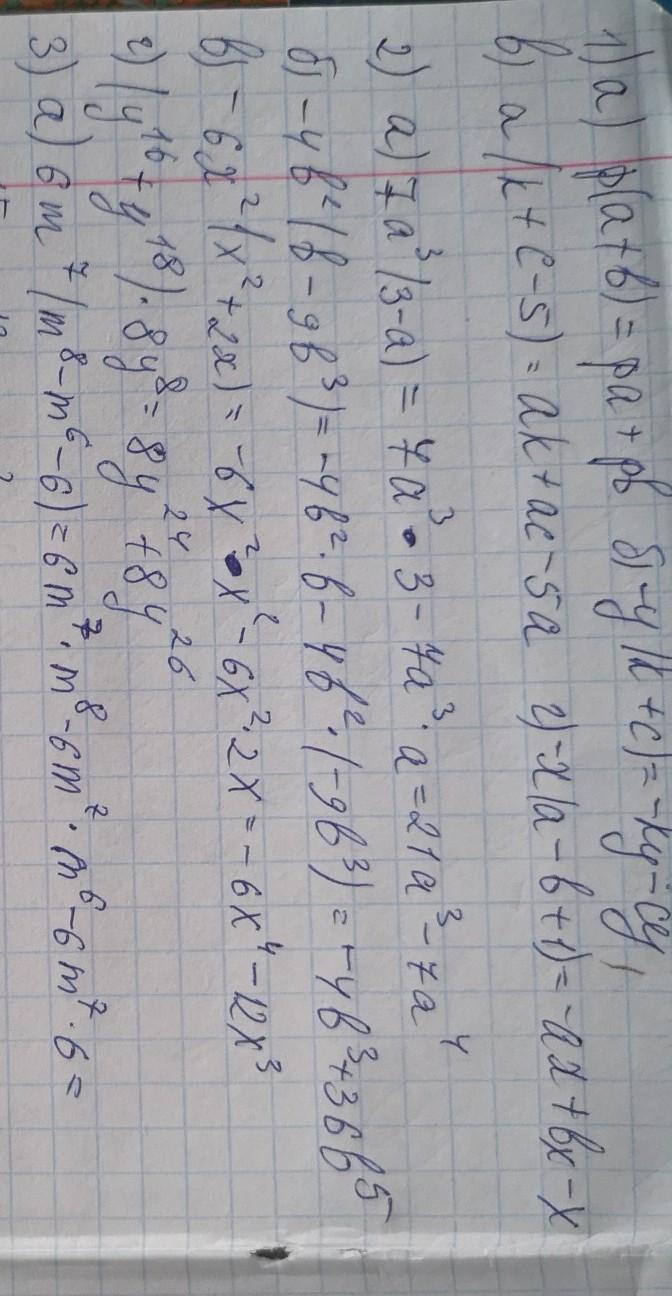 1) а) p(a+b) = pa + pb б) -y(k+c) = -ky-cy
в) a(k+c-5) = ak+ac-5a г) -x(a-b+1) = -ax+bx-x
2) а) 7a³(3-a) = 7a³·3-7a³·a = 21a³-7a⁴
б) -4b²(b-9b³) = -4b²·b-4b²·(-9b³) = -4b³+36b⁵
в) -6x²(x²+2x) = -6x²·x²-6x²·2x = -6x⁴-12x³
г) (y¹⁶+y¹⁸)·8y⁸ = 8y²⁴+8y²⁶
3) а) 6m⁷(m⁸-m⁶-6) = 6m⁷·m⁸-6m⁷·m⁶-6m⁷·6 =